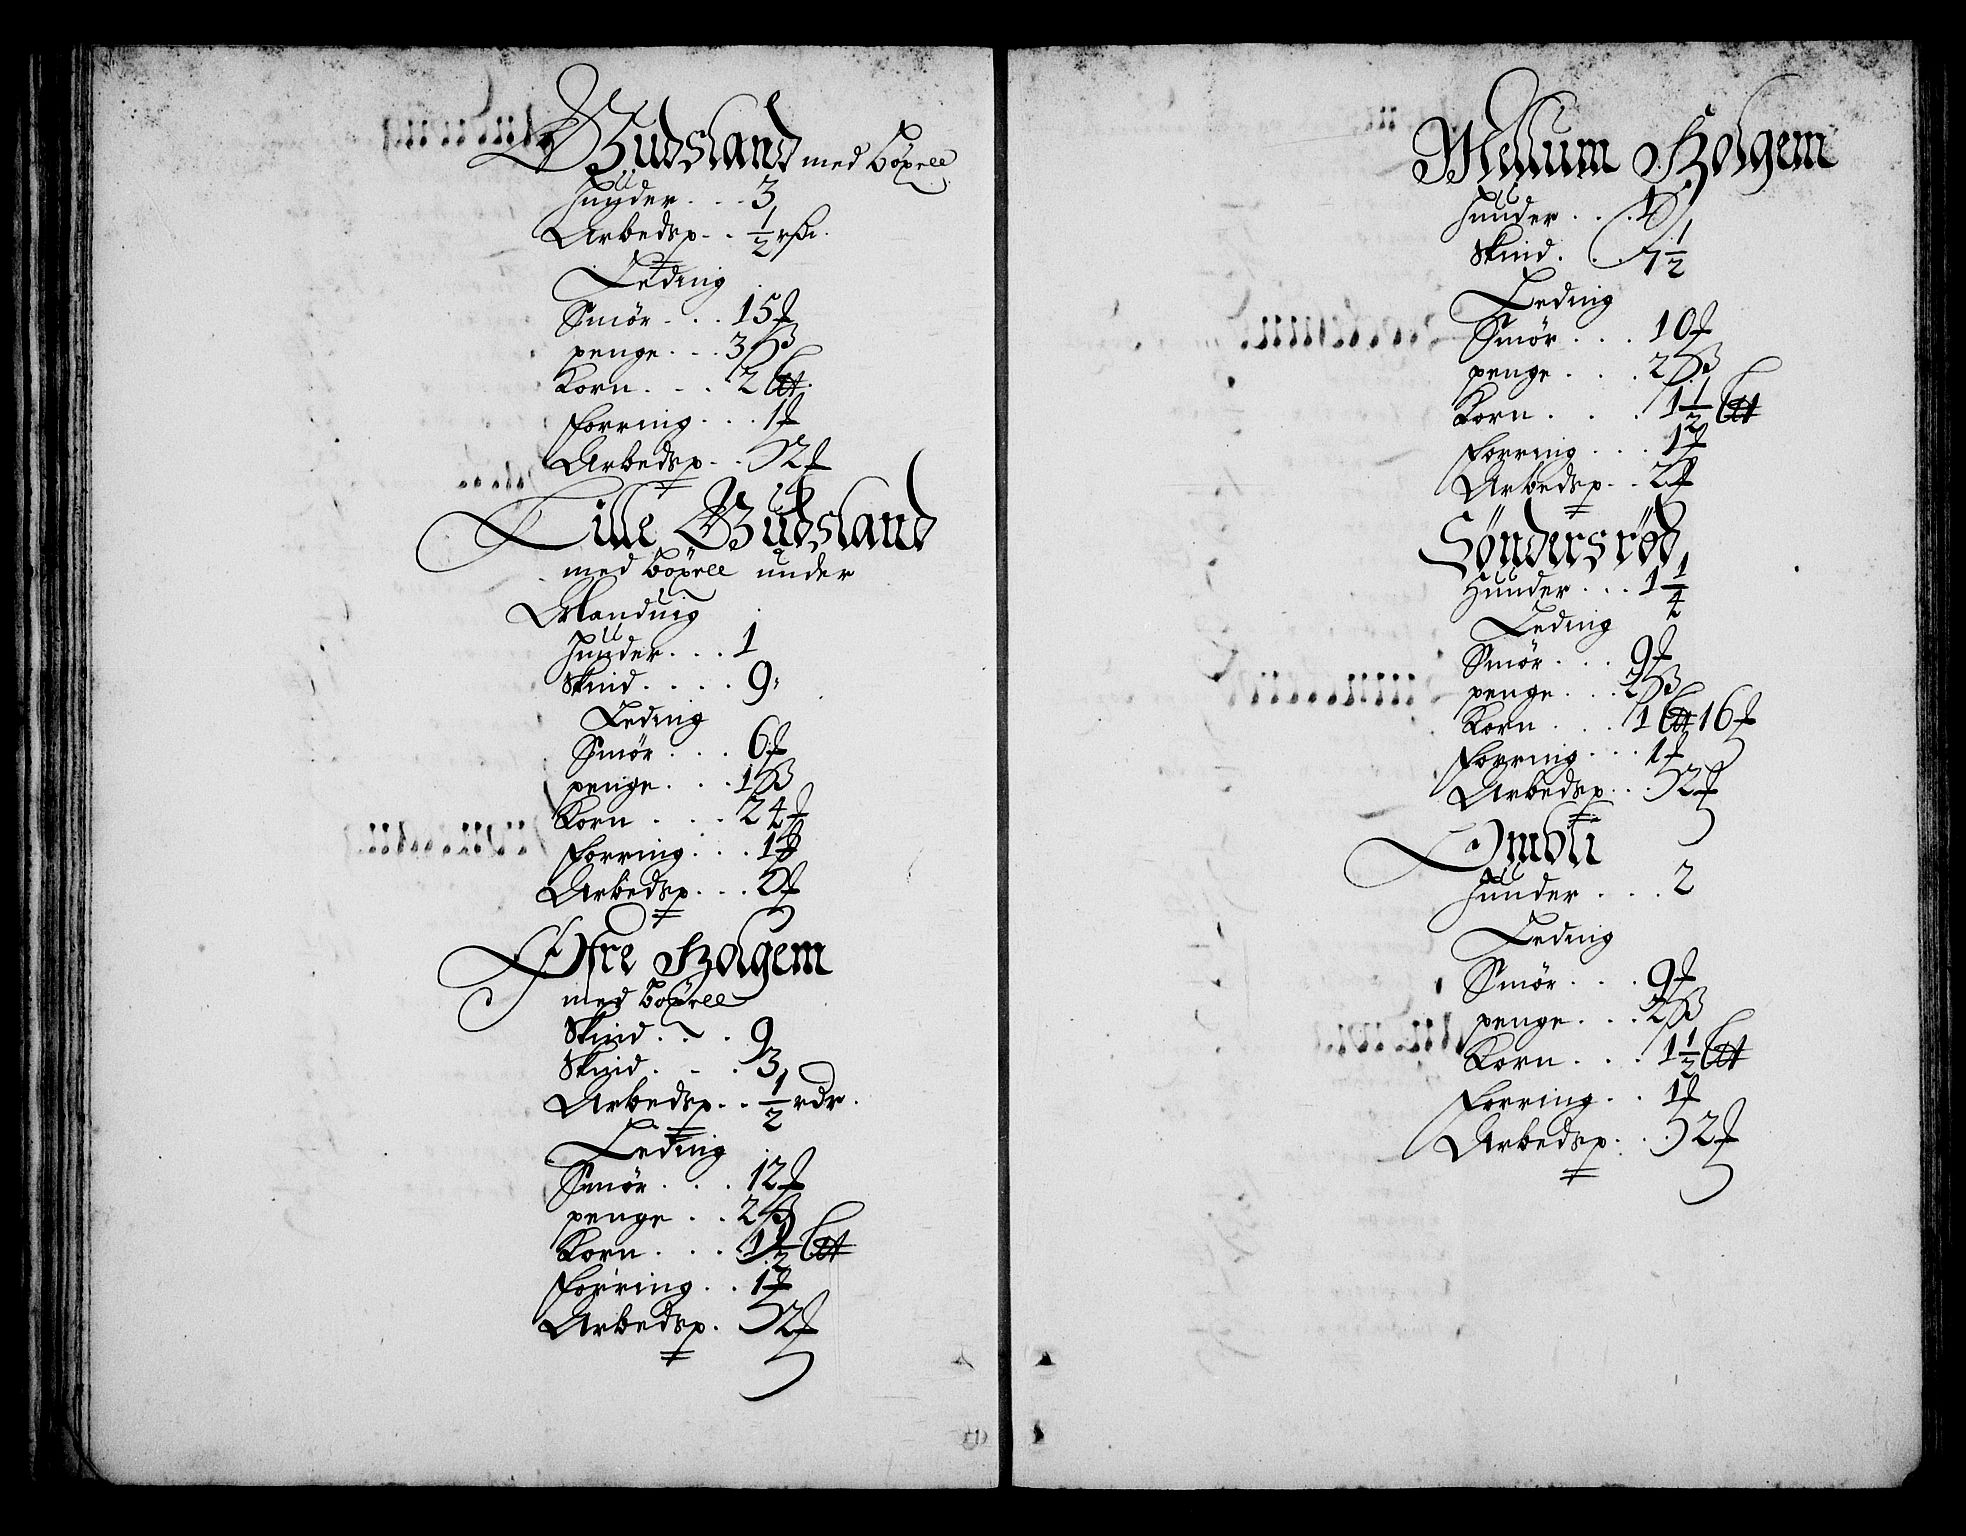 Budsland med böxell
Huuder . . . 3
Arbedsp . . ½ rdr.
Leding
Smör . . . 15 ₰
penge . . . 3 ß
Korn . . . 2 Ltt.
Forring . . . 1 ₰
Arbedsp . . 2 ₰
Lille Budsland
med böxell under
Manduig
Huuder . . . 1
Skind . . . . 9
Leding
Smör . . . 6 ₰
penge . . . 1 ß
Korn . . . 24 ₰
Forring . . . 1 ₰
Arbedsp . . . 2 ₰
Öfre Holgem
med böxell
Skind . . . 9
Skind . . . 3
Arbedsp . . ½ rdr.
Leding
Smör . . . 12 ₰
penge . . 2 ß
Korn . . . 1½ Ltt
Forring . . 1 ₰
Arbedsp . 2 ₰
Mellum Holgem
Huuder . . . 1
Skind . . . 7½
Leding
Smör . . . 10 ₰
penge . . . 2 ß
Korn . . . 1½ Ltt
Forring . . . 1 ₰
Arbedsp . . 2 ₰
Söndersröd
Huuder . . . 1¼
Leding
Smör . . . 9 ₰
penge . . . 2 ß
Korn . . . 1 Ltt 16 ₰
Forring . . . 1 ₰
Arbedsp . . . 2 ₰
Omdli
Huuder . . . 2
Leding
Smör . . . 9 ₰
penge . . . 2 ß
Korn . . . 1½ Ltt
Forring . . 1 ₰
Arbedsp . . 2 ₰